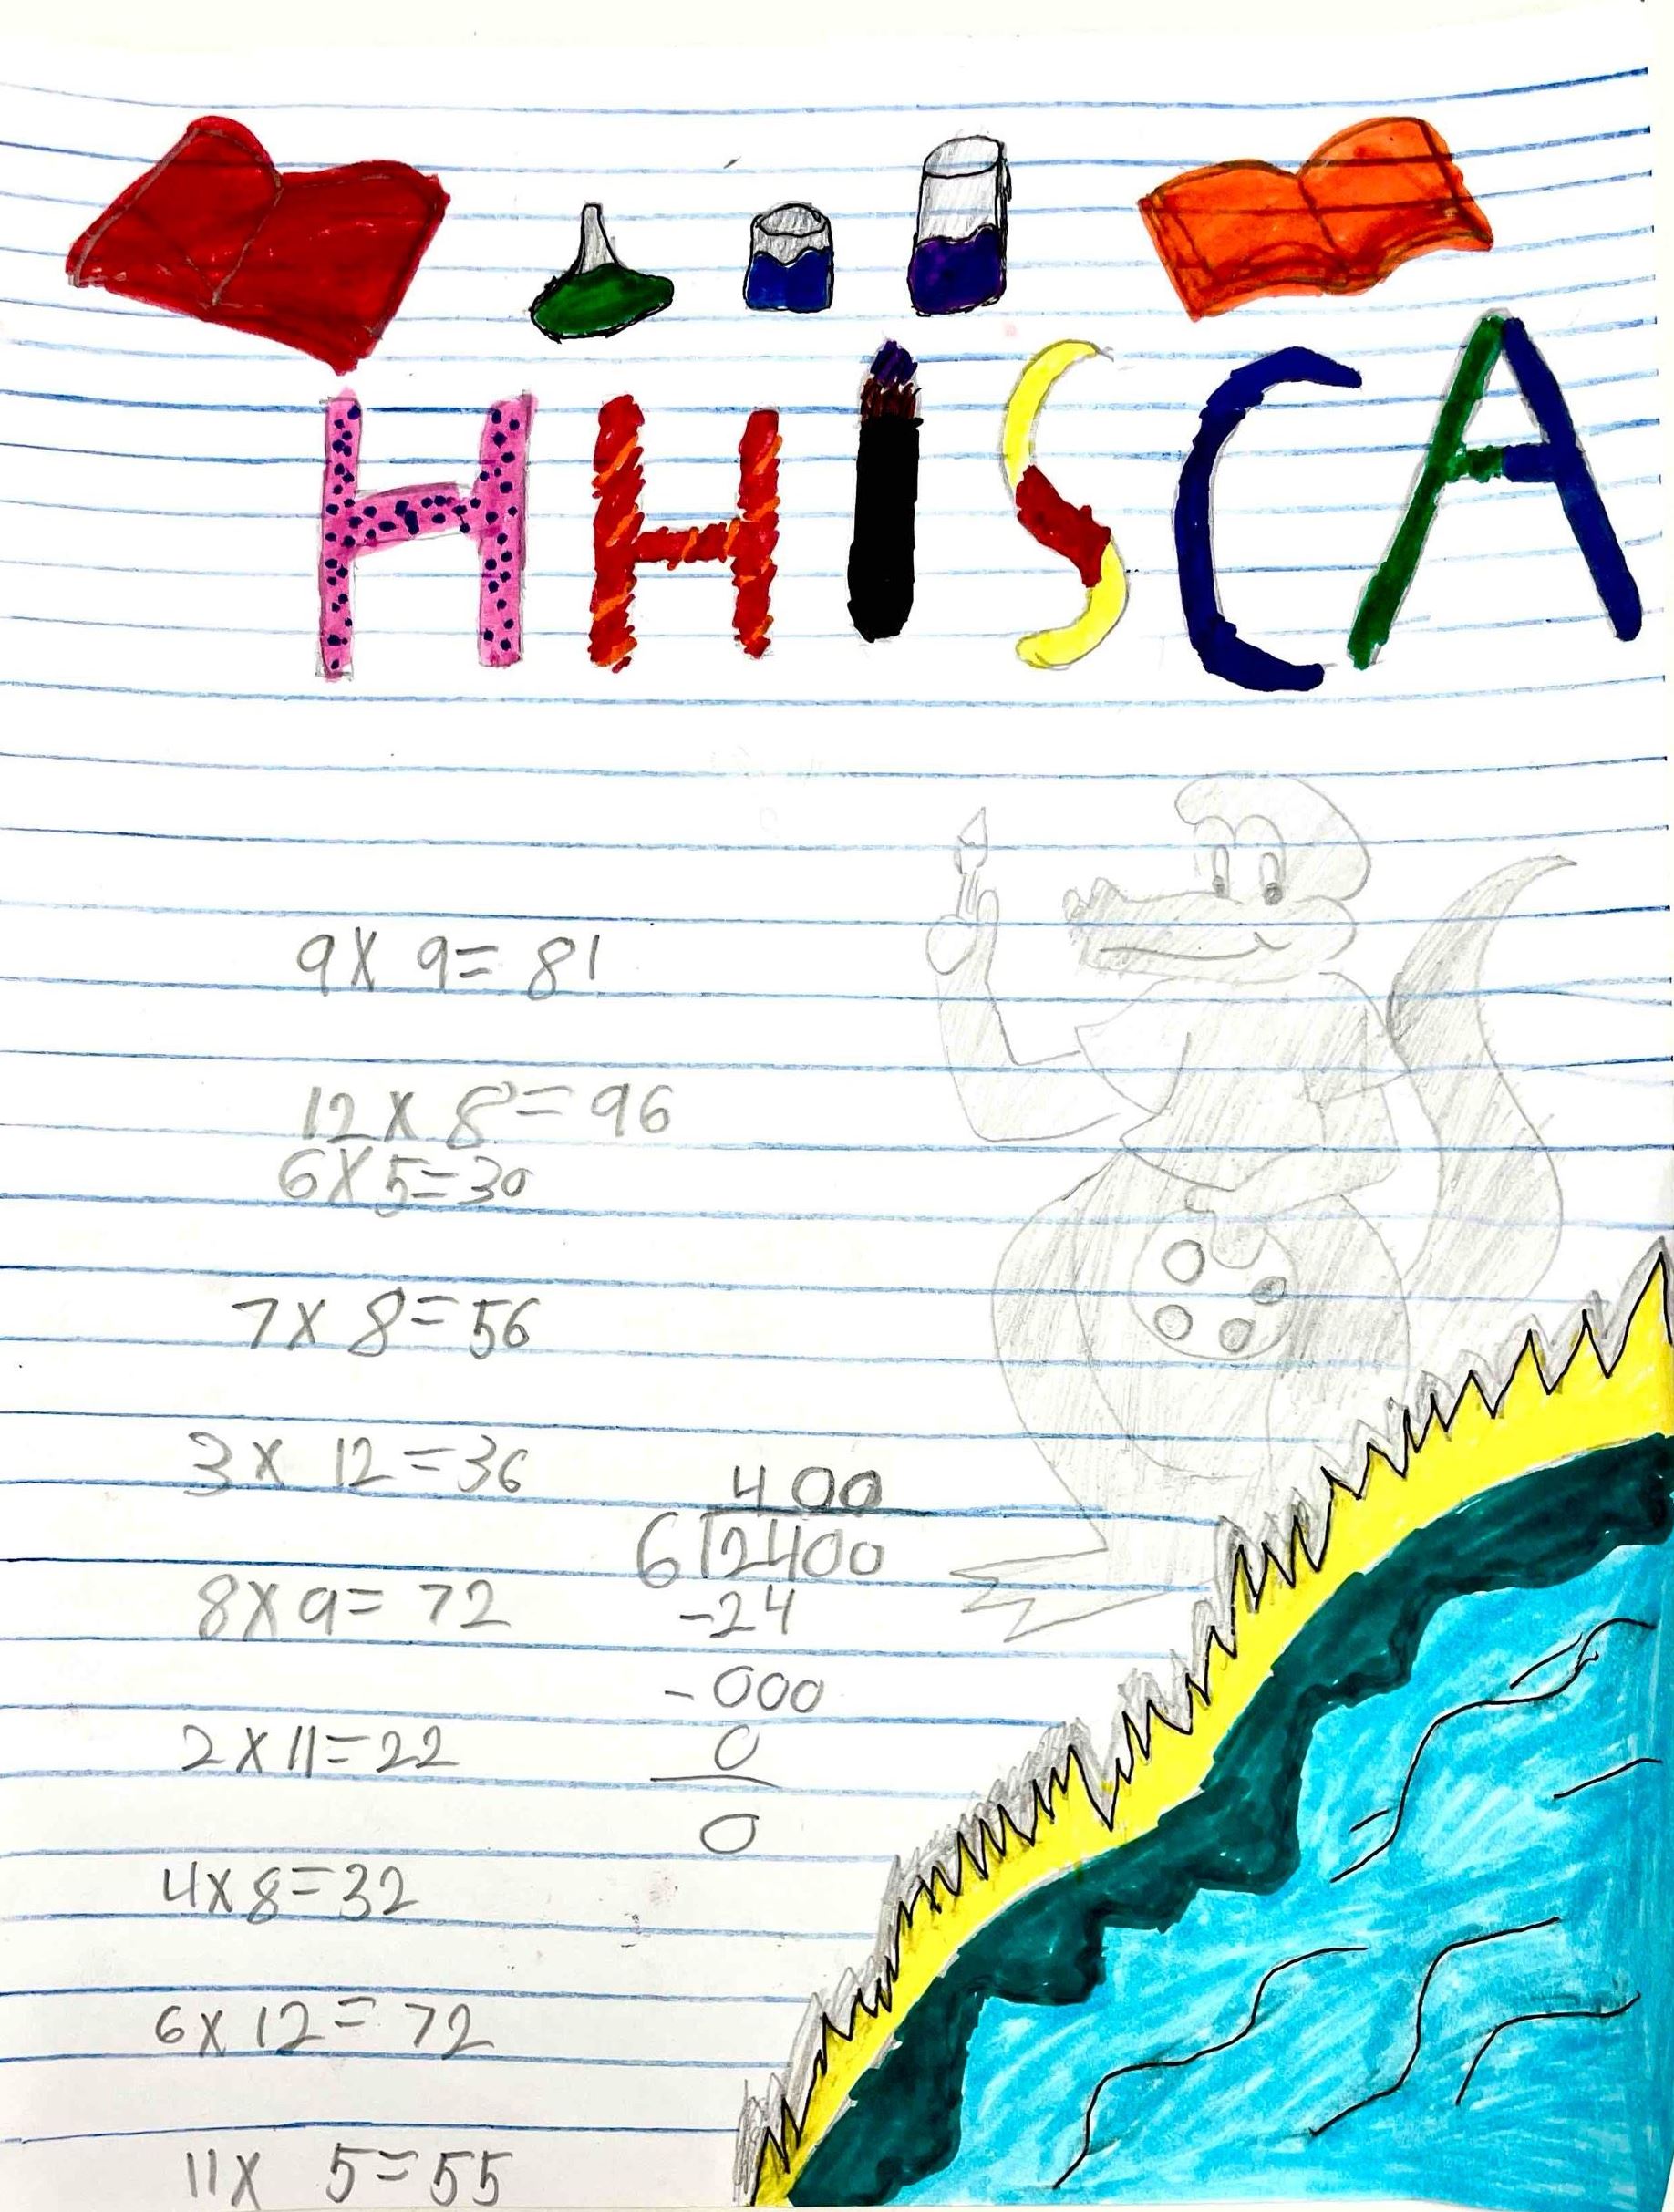 HHISCA
9 X 9 = 81
12 X 8 = 96
6 X 5 = 30
7 X 8 = 56
3 X 12 = 36
8 X 9 = 72
2 X 11 = 22
4 X 8 = 32
6 X 12 = 72
11 X 5 = 55
400
6 2400
-24
-000
0
0